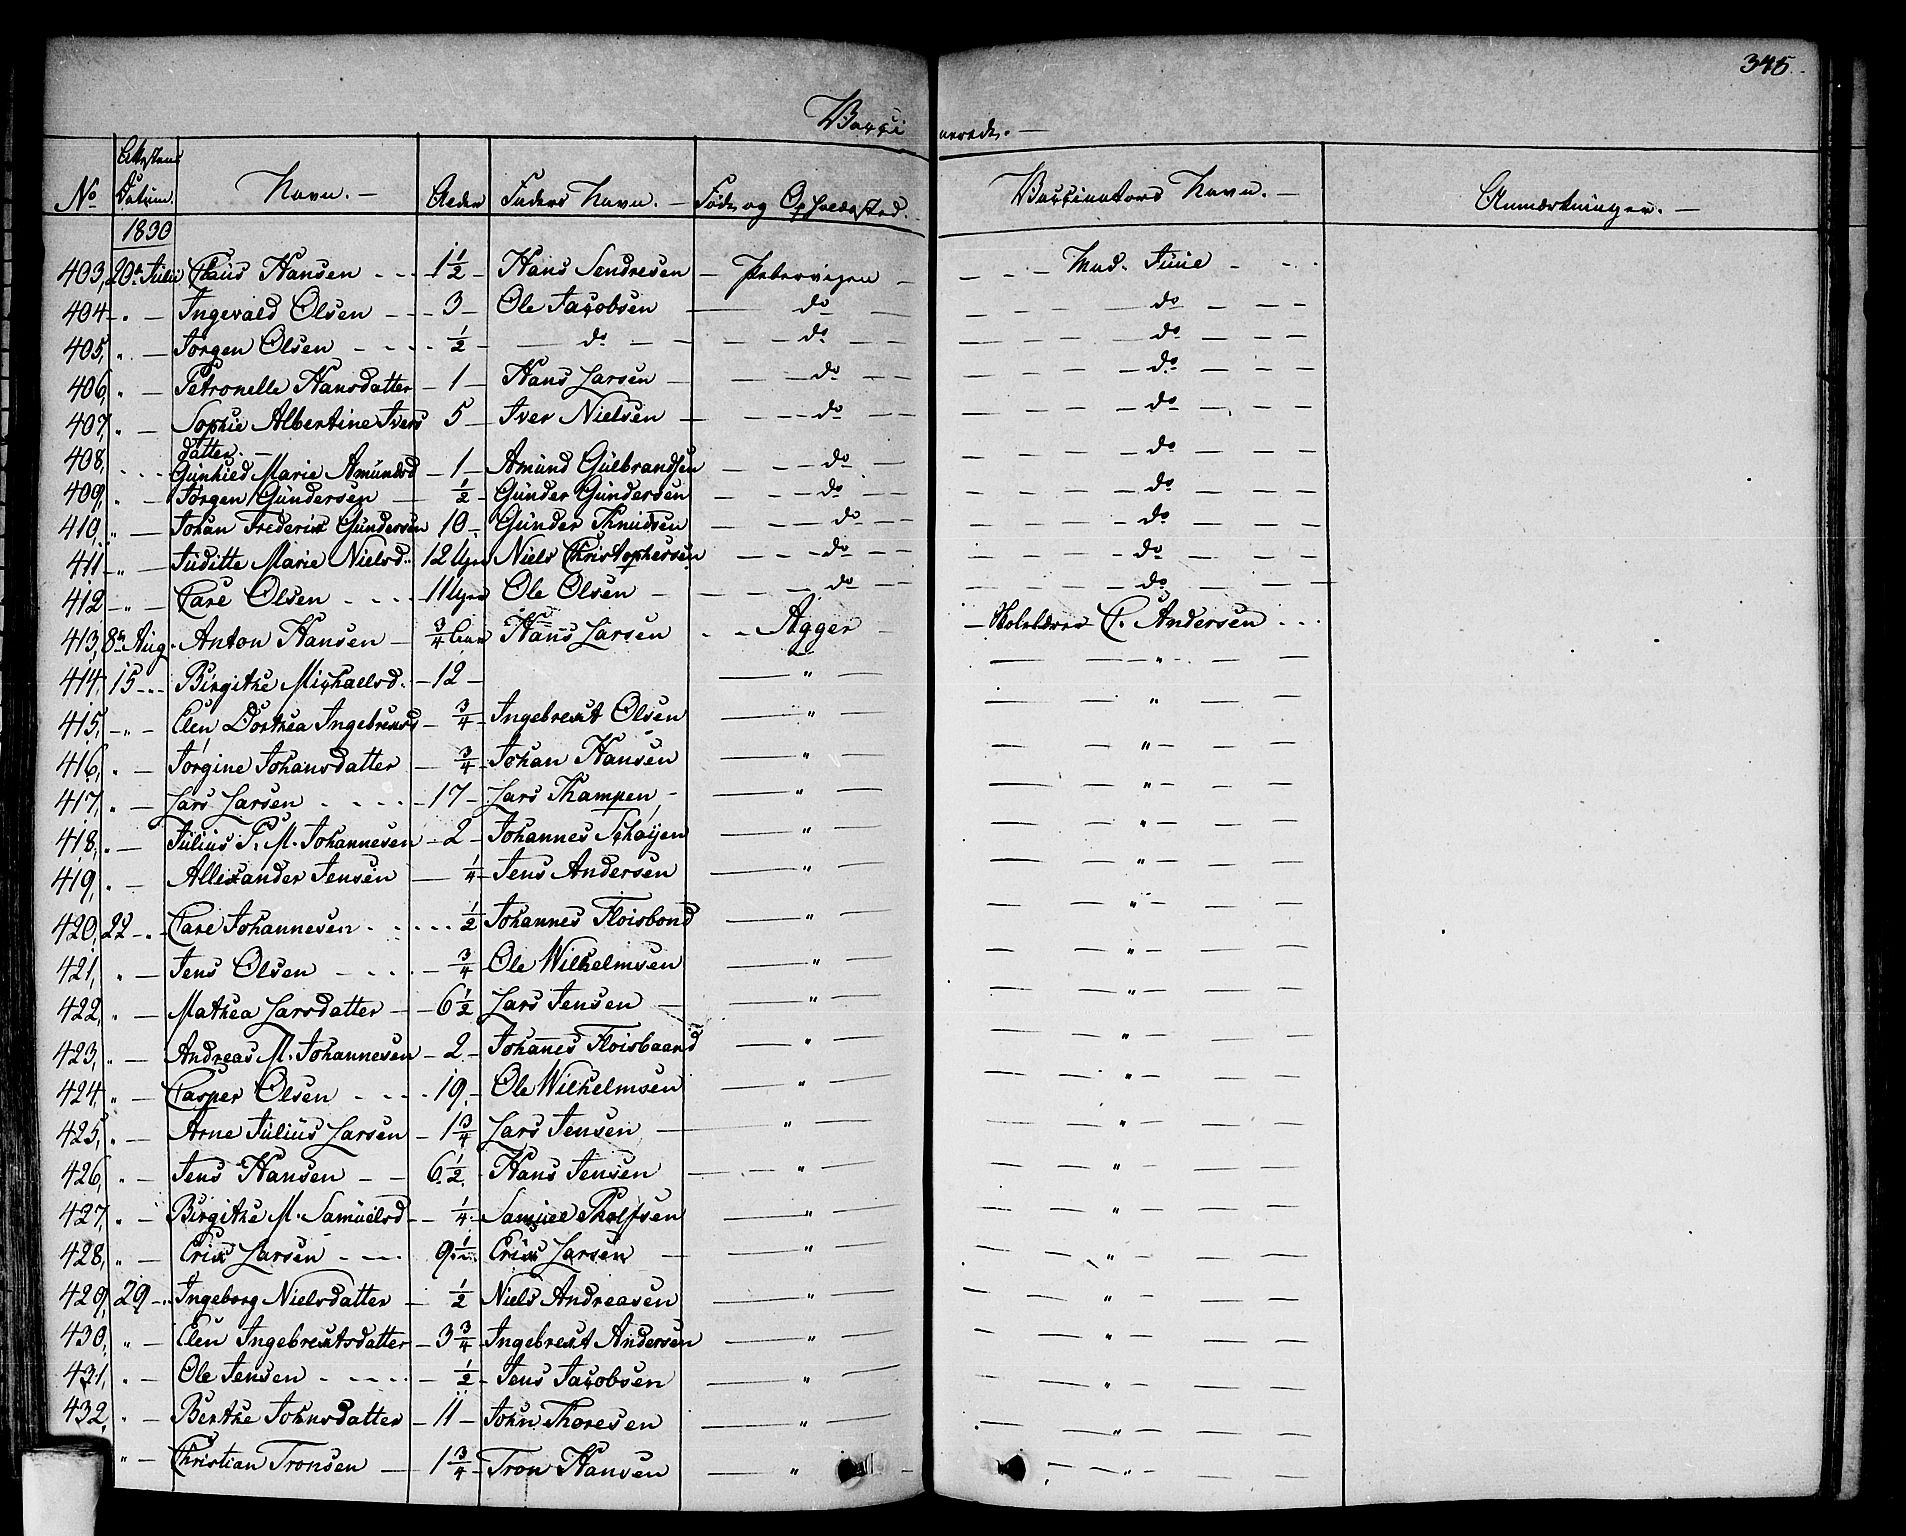 345.
Vacci nerede. —
No Attestens Datum. Navn. — Alder Faders Navn. — Føde og Opholdssted. Vaccinators Navn. — Anmærkninger. —
1830
403, 20de Julii Claus Hansen - - - 1 1/2 - Hans Sendresen — Petervigen — — Mad. Juue - - -
404 - " - Ingevald Olsen - - - 3 - Ole Jacobsen — do — — do — — —
405, " - Jørgen Olsen - - - 1/2 - — do — — — do — — do — — —
406, " — Petronelle Hansdatter — 1 — Hans Larsen — — do — — do — — —
407, " — Sophie Albertine Ivers 5 — Iver Nielsen — — do — — do — — —
datter. —
408, - - - Gunhild Marie Amundsd — 1 — Amund Gulbrandsen — — do — — do — — —
409, " — Jørgen Gundersen — 1/2 - Gunder Gundersen — — do — — do — — —
410, " — Johan Frederik Gundersen 10 - Gunder Knudsen — — do — — do — — —
411 - " — Juditte Marie Nielsd. 12 Uger Niels Christophersen — — do — — do — — —
412 - " — Carl Olsen - - - 11 Uger Ole Olsen — — — do — — do — — —
413, 8de Aug. Anton Hansen — 3/4 Hans Larsen - - Agger — Skolelærer C. Andersen - - -
414, 15 - - - Birgithe Michaelsd. - 12 — — " — — — " — —
415, - " - Elen Dorthea Ingebretsd - 3/4 - Ingebregt Olsen — " — — — " — —
416, " — Jørgine Johansdatter — 3/4 - Johan Hansen — " — — — " — —
417, " — Lars Larsen - - - 17 - Lars Thampen, - — " — — — " — —
418, " — Julius P. M. Johannesen - 2 - Johannes Schøyen — " — — — " — —
419, " — Allexander Jensen — 1/4 - Jens Andersen — " — — — " — —
420, 22 - " - Carl Johannesen - - - 1/2 Johannes Floisbond — " — — — " — —
421, " — Jens Olsen - - - 3/4 Ole Wilhelmsen — " — — — " — —
422, " — Mathea Larsdatter - - 6 1/2 Lars Jensen — — " — — — " — —
423, " — Andreas M. Johannesen - 2 - Johanes Floisbaand — " — — — " — —
424, " — Casper Olsen - - - 19, - Ole Wilhelmsen — " — — — " — —
425, " — Arne Julius Larsen - 1 3/4 Lars Jensen — — " — — — " — —
426, " — Jens Hansen - - 6 1/2 - Hans Jensen — — " — — — " — —
427, " — Birgithe M. Samuelsd - - 1/4 - Samuel Tholfsen — " — — — " — —
428, " — Erik Larsen - - - 9 1/2 Erik Larsen — — " — — — " — —
429, 29 - " Ingeborg Nielsdatter - 1/2 Niels Andreasen — " — — — " — —
430, " — Elen Ingebregtsdatter - 3 3/4 Ingebregt Andersen — " — — — " — —
431, " — Ole Jensen - - - 1/2 - Jens Jacobsen — " — — — " — —
432, " — Berthe Johnsdatter - 11 - John Thoresen — " — — — " — —
" — Christian Tronsen — 1 3/4 - Tron Hansen — " — — — " — —